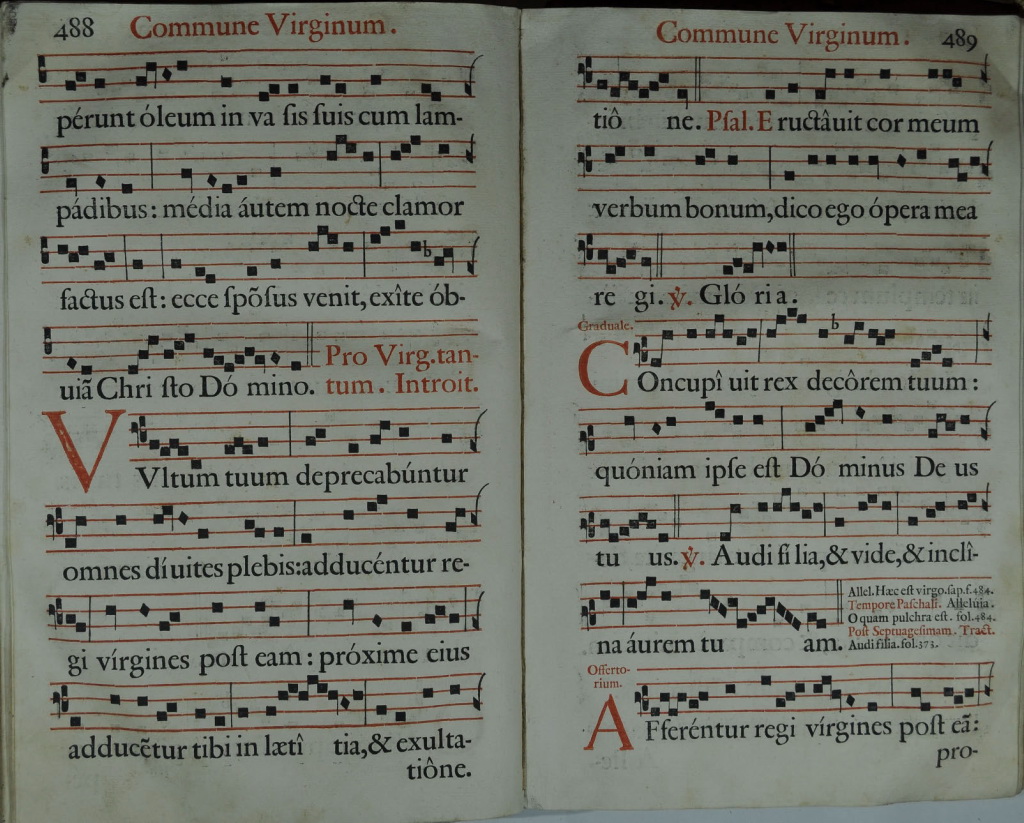 488 Commune Virginum.
pérunt óleum in va sis suis cum lam-
pádibus: média áutem nocte clamor
factus est: ecce spõsus venit, exîte ób-
uiã Chri sto Dó mino. Pro Virg. tan-
tum. Introit.
VVltum tuum deprecabúntur
omnes díuites plebis: adducéntur re-
gi vírgines post eam: próxime eius
adducẽtur tibi in lætî tia, & exulta-
tiône.
Commune Virginum. 489
tiô ne. Psal. E ructâuit cor meum
verbum bonum, dico ego ópera mea
re gi. ℣. Gló ri a.
Graduale.
COncupî uit rex decôrem tuum:
quóniam ipse est Dó minus De us
tu us. ℣. Audi fi lia, & vide, & inclî-
na áurem tu am.
Allel. Hæc est virgo. sap. f. 484.
Tempore Paschali. Alleluia.
O quam pulchra est. fol. 484.
Post Septuagesimam. Tract.
Audi filia. fol. 373.
Offerto-
rium.
AFferéntur regi vírgines post eã:
pro-